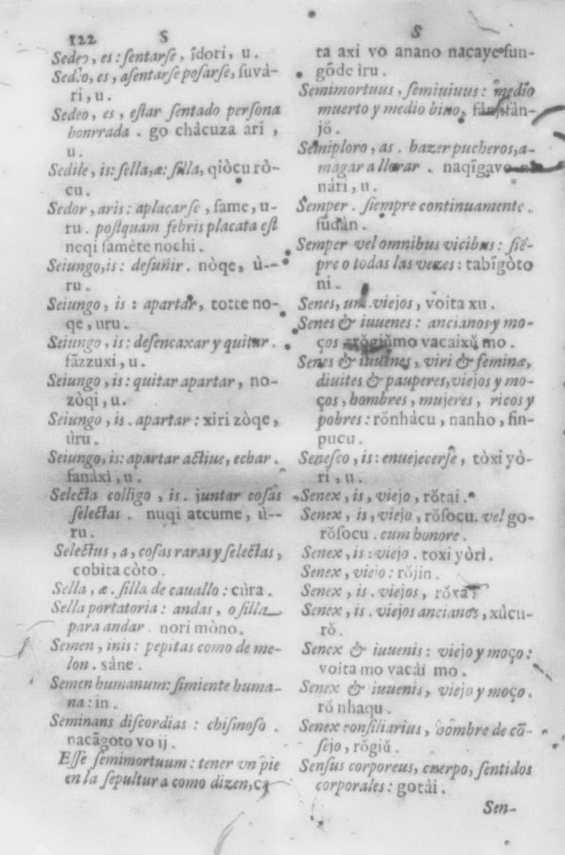 122 S
Sedeo, es: sentarse, idori, u.
Sedeo, es, asentarse posarse, suvà-
ri, u.
Sedeo, es, estar sentado persona
honrrada. go chàcuza ari,
u.
Sedile, is: sella, æ: silla, qiòcu rò-
cu.
Sedor, aris: aplacarse, same, u-
ru. postquam febris placata est
neqi samète nochi.
Seiungo, is: desunir. nòqe, ù-
ru.
Seiungo, is: apartar, totte no-
qe, uru.
Seiungo, is: desencaxar y quitar.
fãzzuxi, u.
Seiungo, is: quitar apartar, no-
zòqi, u.
Seiungo, is. apartar: xiri zòqe,
ùru.
Seiungo, is: apartar actiue, echar.
fanàxi, u.
Selecta colligo, is. juntar cosas
selectas. nuqi atcume, ù-
ru.
Selectus, a, cosas raras y selectas,
cobita còto.
Sella, æ. silla de cauallo: cùra.
Sella portatoria: andas, o silla
para andar. nori mòno.
Semen, inis: pepitas como de me-
lon. sàne.
Semen humanum: simiente huma-
na: in.
Seminans discordias: chismoso.
nacãgoto vo ij.
Esse semimortuum: tener vn pie
en la sepultura como dizen,
S
ta axi vo anano nacaye sun-
gõde iru.
Semimortuus, semiuiuus: medio
muerto y medio biuo,
jõ.
Semiploro, as. hazer pucheros, a-
magar a llorar. naqĩgavo
nàri, u.
Semper. siempre continuamente.
fudàn.
Semper vel omnibus vicibus: siẽ-
pre o todas las vezes: tabĩgòto
ni.
Senes, viejos, voita xu.
Senes & iuuenes: ancianos y mo-
ços mo vacaixũ mo.
Senes & iuuenes, viri & feminæ,
diuites & pauperes, viejos y mo-
ços, hombres, mujeres, ricos y
pobres: rõnhàcu, nanho, fin-
pucu.
Senesco, is: enuejecerse, tòxi yò-
ri, u.
Senex, is, viejo, rõtai.
Senex, is, viejo, rõsocu. vel go-
rõsocu. cum honore.
Senex, is: viejo. toxi yòri.
Senex, viejo: rõjin.
Senex, is. viejos,
Senex, is. viejos ancianos, xùcu-
rõ.
Senex & iuuenis: viejo y moço:
voita mo vacài mo.
Senex & iuuenis, viejo y moço.
rõ nhaqu.
Senex consiliarius, hombre de cõ-
sejo, rõgiũ.
Sensus corporeus, cuerpo, sentidos
corporales: gotài.
Sen-